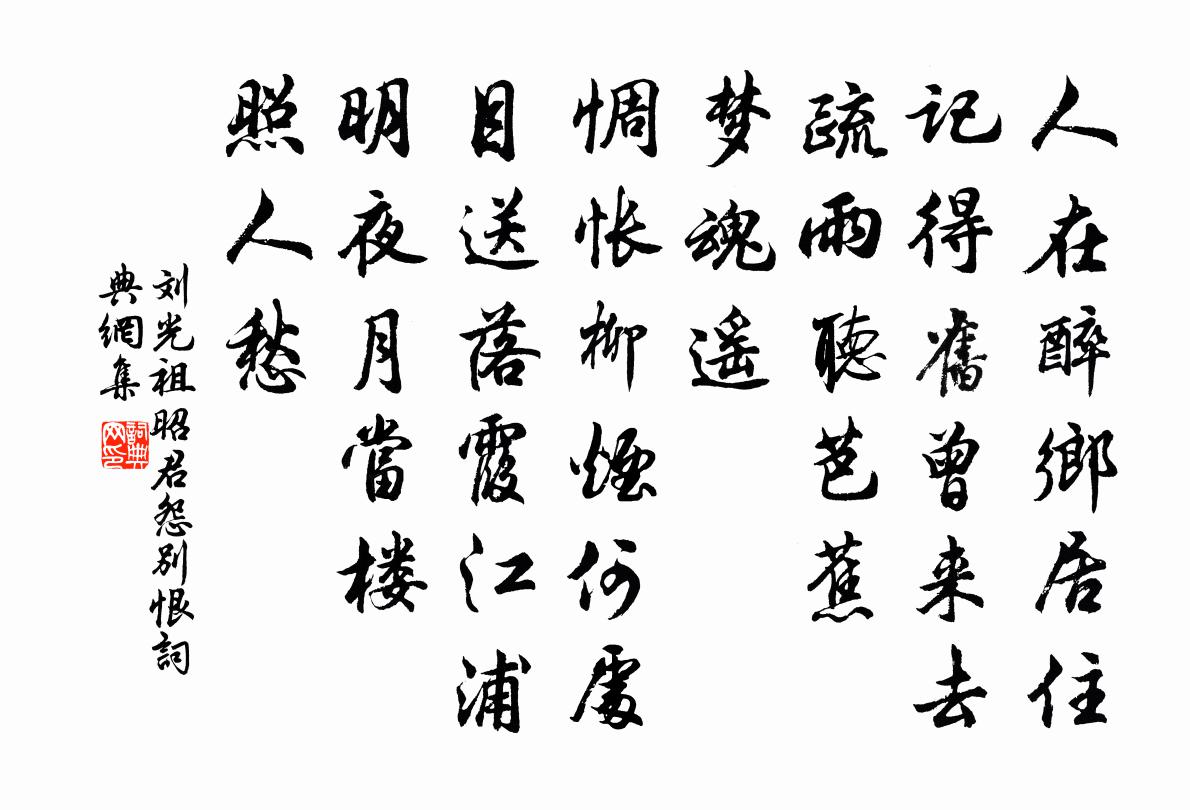 人在醉鄉居住
記得舊曾来去
疏雨聽芭蕉
梦魂遥
惆怅柳煙何處
目送落霞江浦
明夜月當楼
照人愁
刘光祖昭君怨别恨詞
典網集
詞典网印